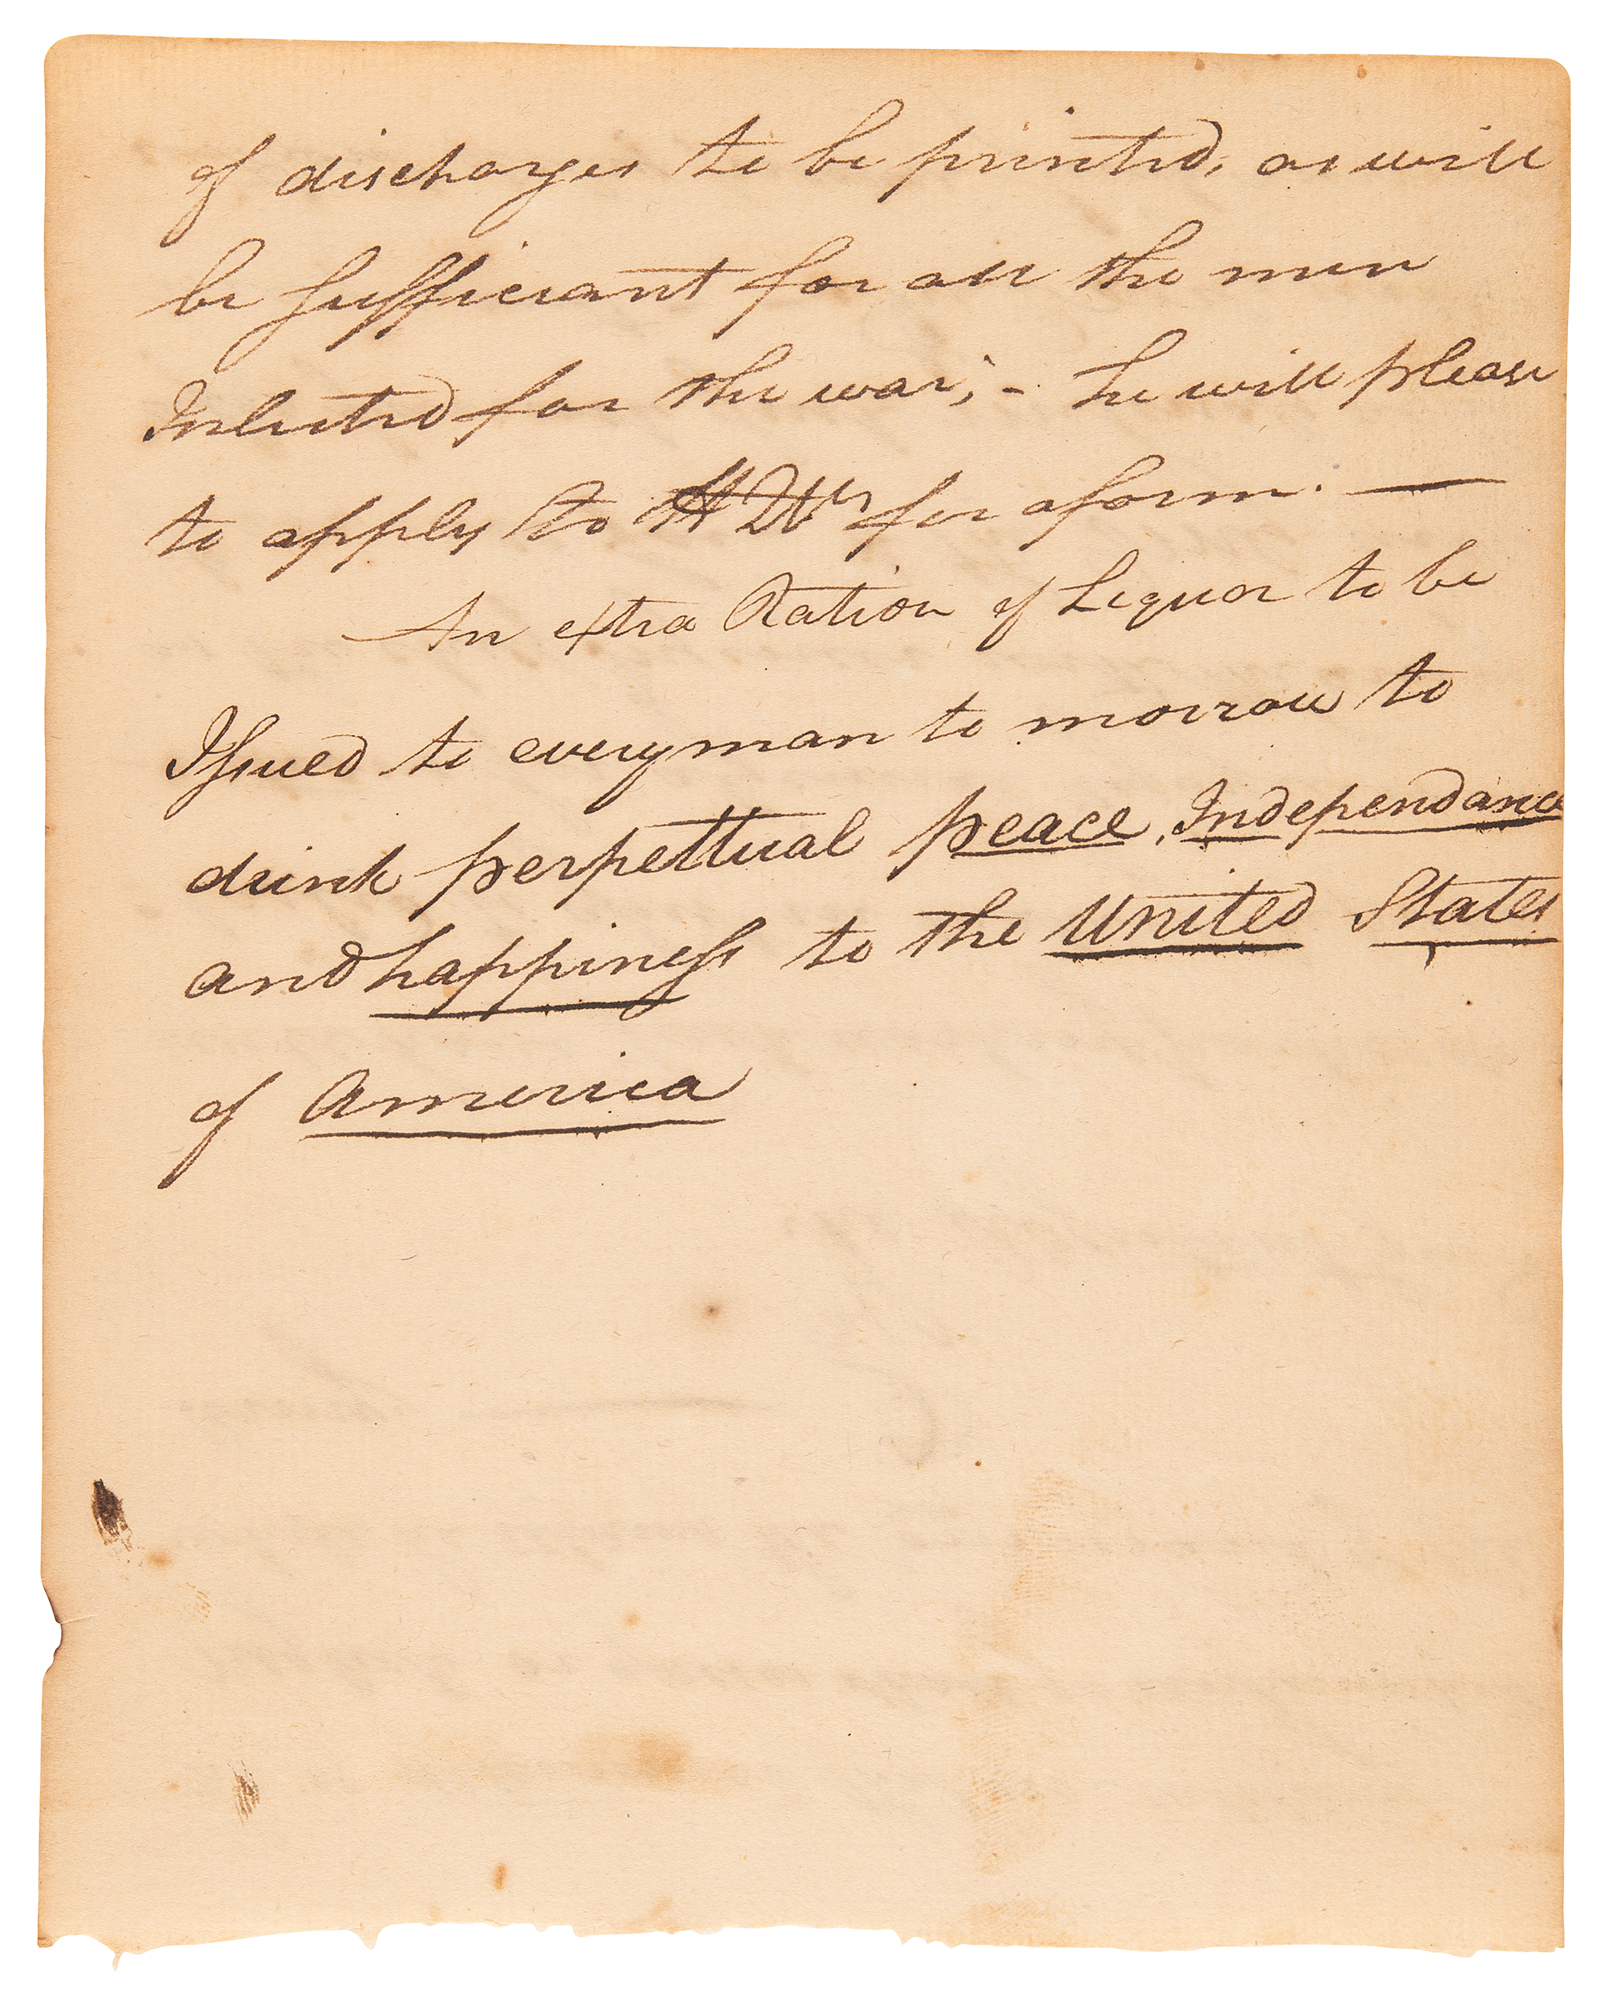 of discharges to be printed, as will
be sufficiant for all the men
Inlisted for the war; - he will please
to apply to H Qtrs for a form. —
An extra Ration of Liquor to be
Issued to every man to morrow to
drink perpettual peace, Independance
and happiness to the United States
of America